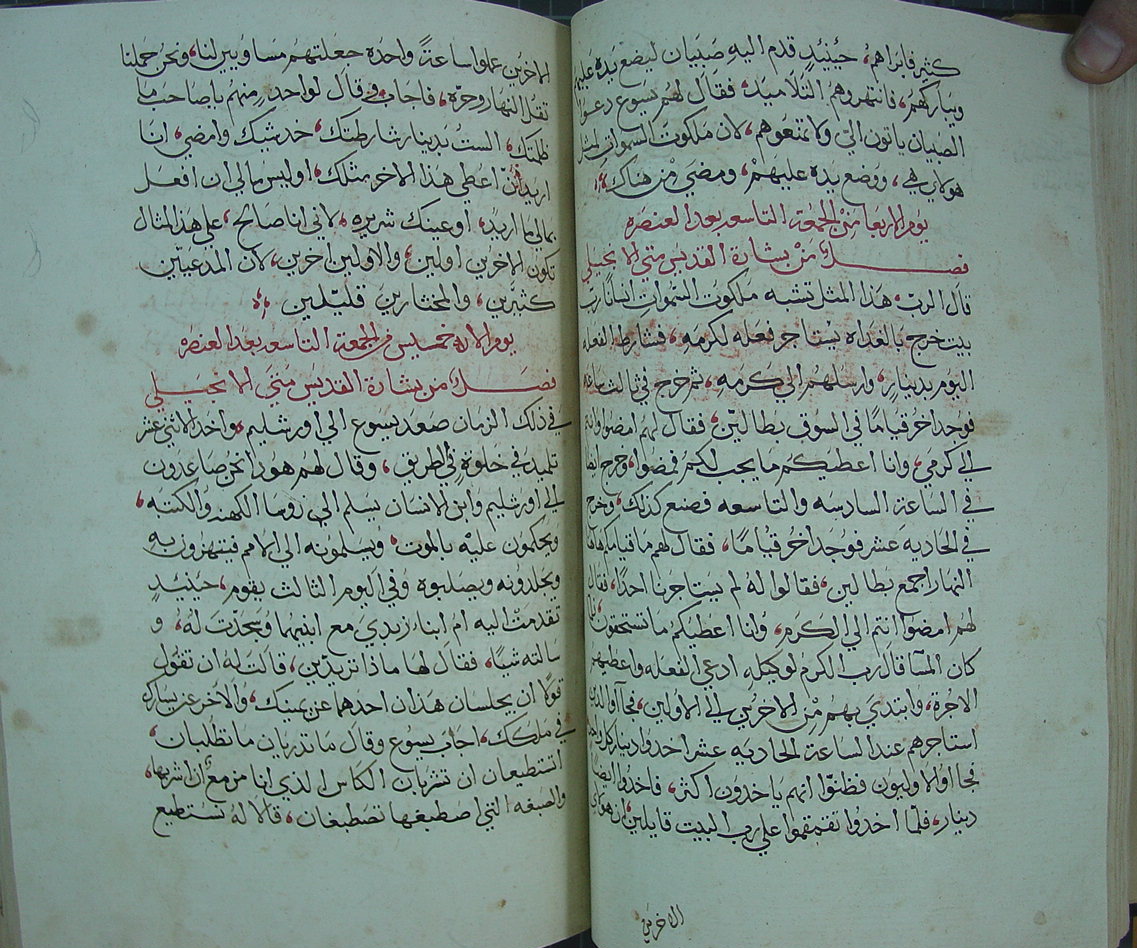 كثير فابراهم، حينيدٍ قدم اليه صَبيان ليضع يَده عليهم
ويباركهم، فانتهروهم التلاميد، فقال لهم يسوع دعوا
الصبيان ياتون اليَّ ولا تمنعوهم، لان ملكوت السموات لمثل
هولاي هي، ووضع يده عليهمْ، ومضي مِنْ هناك
يوم الاربعا مِنَ الجمعة التاسعه بعد العنصره
فصل مِنْ بشارة القديس متي الانجيلي
قال الربّ هذا المثل تشبه ملكوت السموات انسانًا رب
بيت خرج بالغداه يستاجر فعله لكرمه، فشارط الفعله
اليوم بدينارٍ، وارسلهم الي كرمهِ، ثم خرج في ثالث ساعه
فوجد اخر قيامًا في السوق بطالين، فقال لهم امضوا انتم
الي كرمي، وانا اعطيكم ما يجب لكم فمضوا، وخرج ايضا
في الساعة السادسه والتاسعه فصنع كذلك، وخرج
في الحاديه عشر فوجد اخر قيامًا، فقال لهم ما قيامكم هاهنا
النهار اجمع بطالين، فقالوا لهُ لم يستاجرنا احدًا، فقال
لهم امضوا انتم الي الكرم، وانا اعطيكم ما تستحقون، فلما
كان المسآ قال رب الكرم لوكيله ادعي الفعله واعطيهم
الاجرة، وابتدي بهم مِنَ الاخرين الي الاولين، فجآاوا الذين
استاجرهم عند الساعة الحاديه عشر اخدوا دينار كل واحد
فجااوا الاوليون فظنوا انهم ياخدون اكثر، فاخدوا ايضًا
دينار، فلما اخدوا تقمقموا علي رب البيت قايلين، ان هولاي
الاخرين
الاخرين عملوا ساعةً واحده جعلتهم مساويين لنا، ونحن حملنا
تقل النهار وحرّه، فاجاب وقال لواحدٍ منهم يا صاحب ما
ظلمتك، الستُ بدينار شارطتك، خد شيك وامضي، انا
اريد انّ اعطي هذا الاخر مثلك، اوليس مالي ان افعل
بمالي ما اريد، او عينك شريره، لاني انا صالح، علي هذ المثال
تكون الاخرين اولين، والاولين اخرين، لان المدعيين
كثيرين، والمختارين قليلين
يوم الاربه خميس من الجمعة التاسعه بعد العنصره
فصل من بشارة القديس متي الانجيلي
في ذلك الزمان صعد يسوع الي اورشليم، واخد الاثني عشر
تلميد في خلوةٍ في الطريق، وقال لهم هودا نحن صاعدون
الي اورشليم وابن الانسان يسلم الي روسا الكهنه والكتبه،
ويحكمون عليه بالموت، ويسلمونه الي الامم فيتهزون بهِ
ويجلدونه ويصلبوه وفي اليوم الثالث يقوم، حينيدٍ
تقدمت اليه ام ابناء زبدي مع ابنيها وسجدت لهُ، و
سالته شيًا، فقال لها ماذا تريدين، قالت له ان تقول
قولًا ان يجلسان هذان احدهما عن يمينك، والاخر عن يسارك
في ملكك، اجاب يسوع وقال ما تدريان ما تطلبان،
اتستطيعان ان تشربان الكاس الذي انا مزمع ان اشربها،
والصبغه التي اصطبغها تصطبغان، قالا لهُ نستطيع